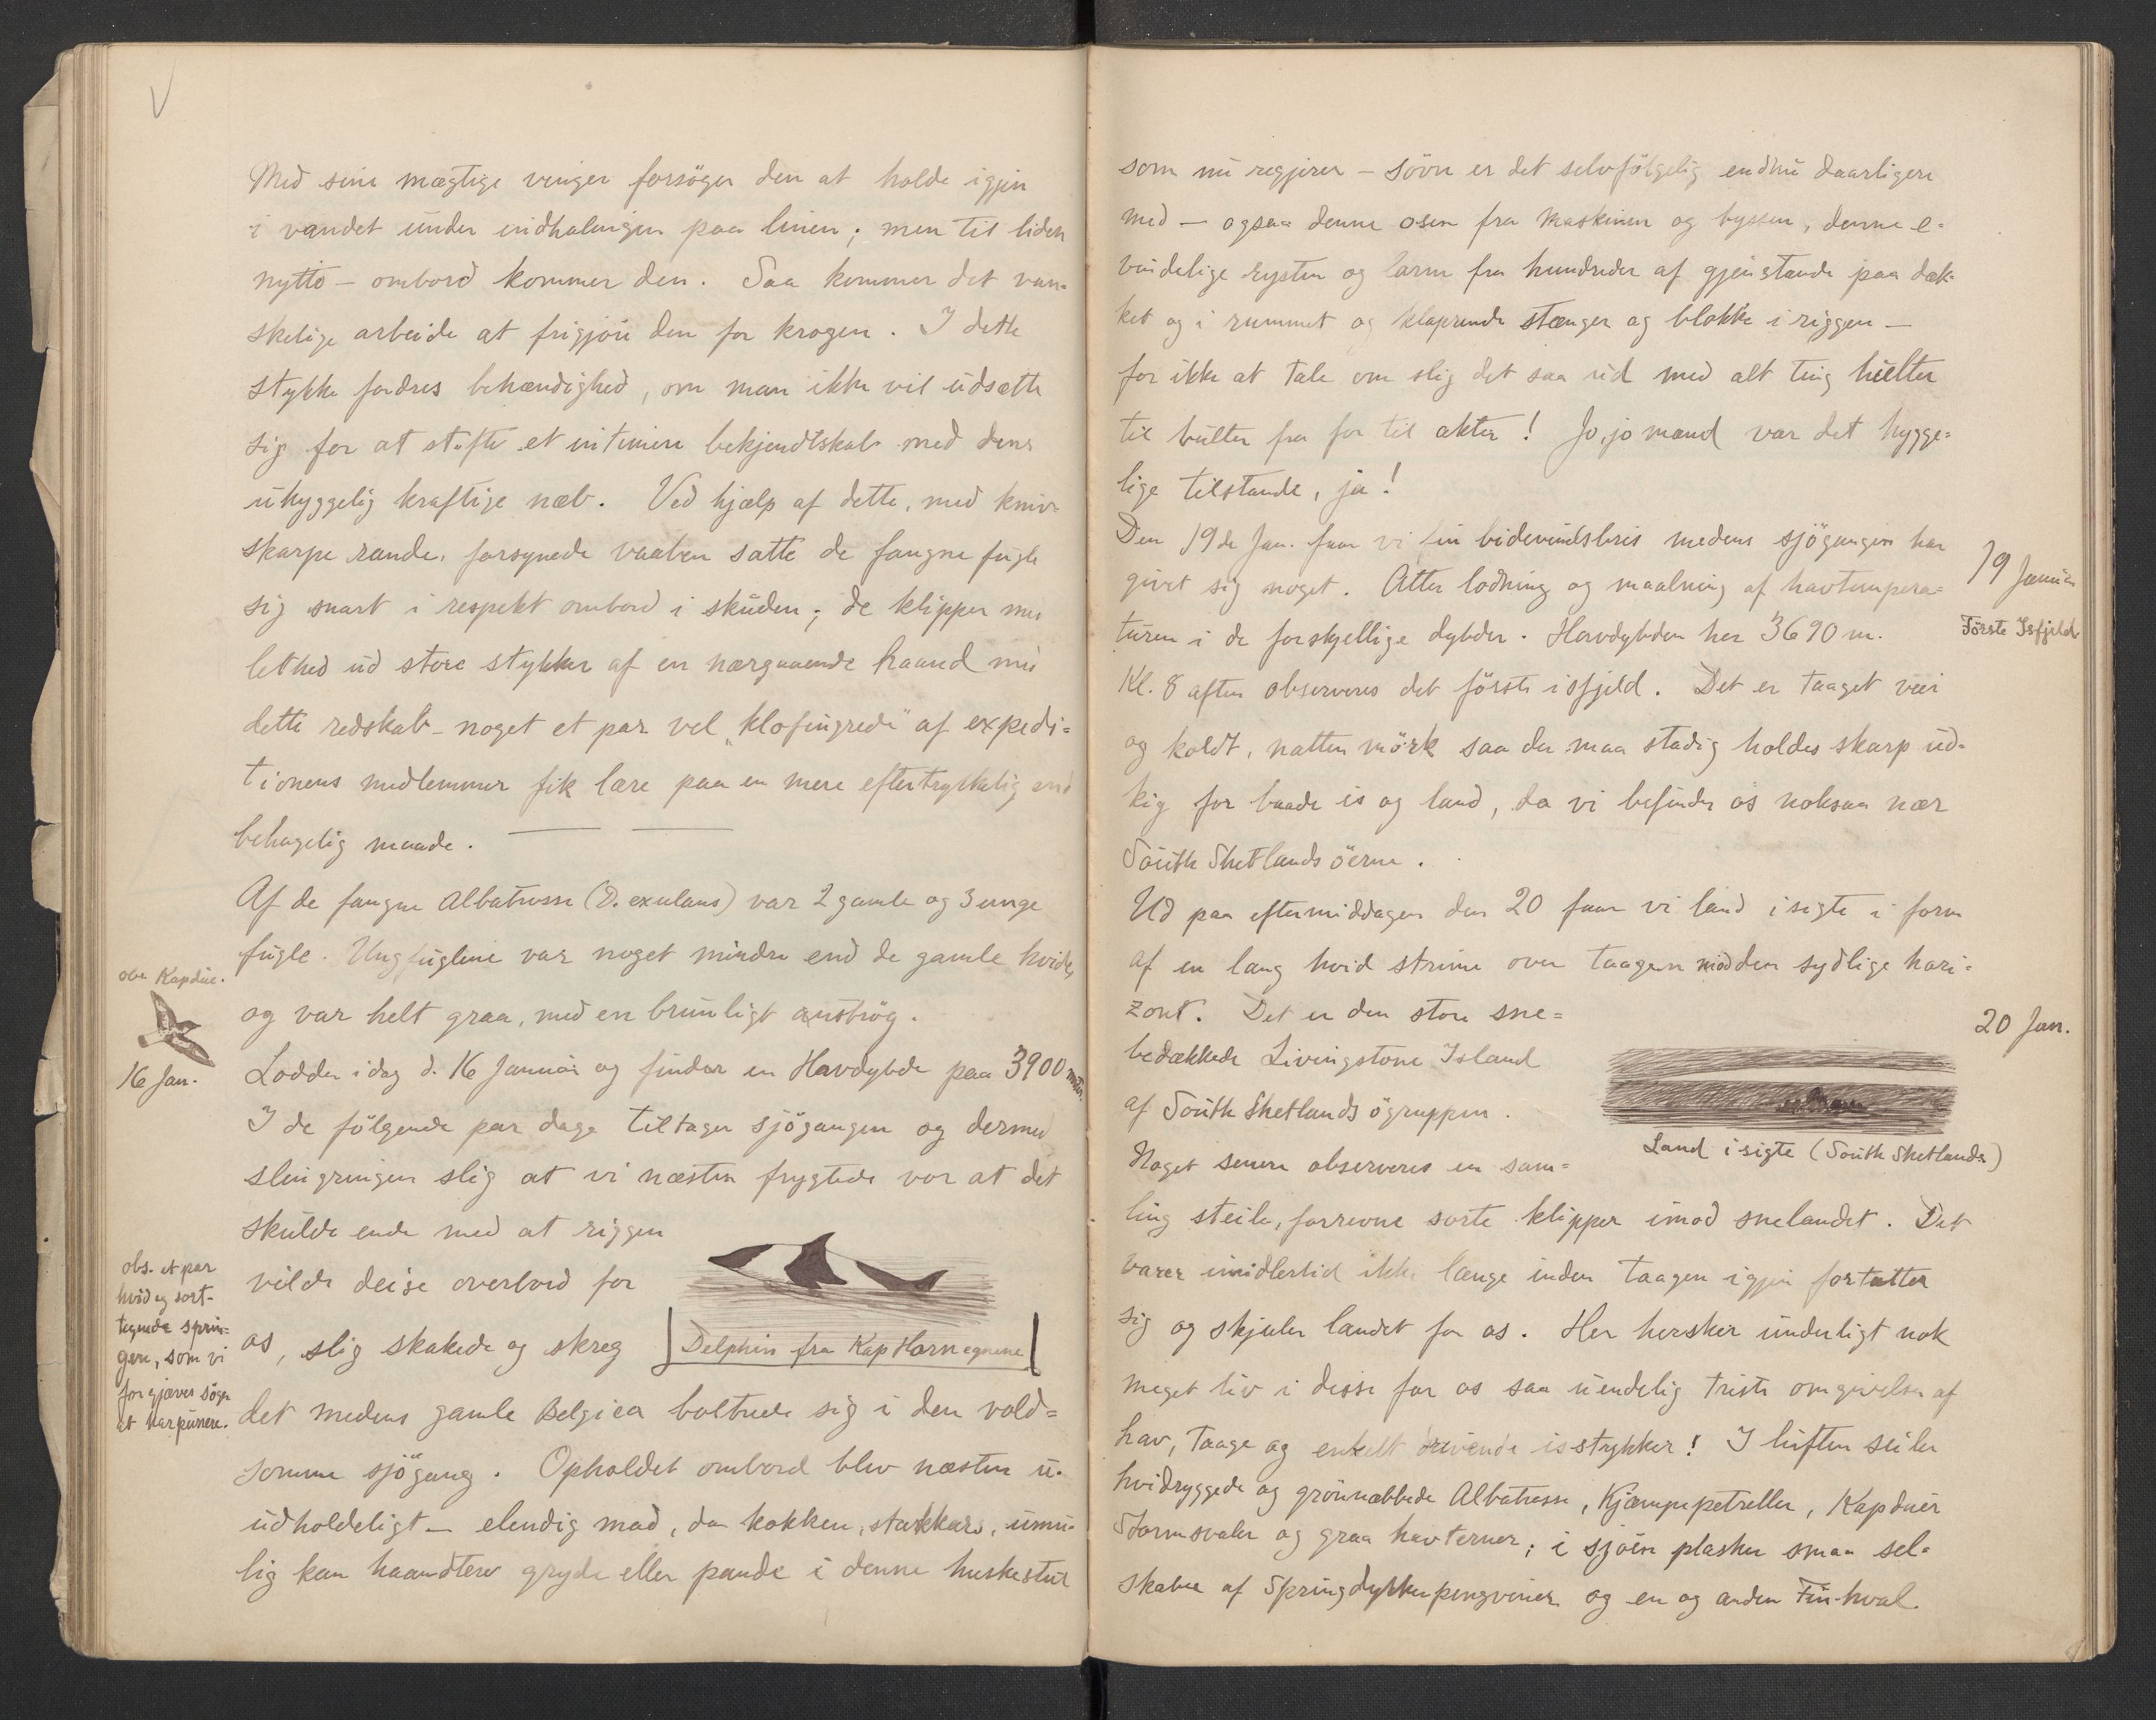 Med sine mægtige vinger forsöger den at holde igjen
i vandet under indhalingen paa linen; men til liden
nytte – ombord kommer den. Saa kommer det van-
skelige arbeide at frigjöre den for krogen. I dette
stykke fordres behændighed, om man ikke vil udsætte
sig for at stifte et intimere bekjendtskab med dens
uhyggelig kraftige næb. Ved hjælp af dette, med kniv-
skarpe rande, forsynede vaaben satte de fangne fugle
sig snart i respekt ombord i skuden; de klipper med
lethed ud store stykker af en nærgaaende haand med
dette redskab – noget et par vel „klofingrede" af expedi-
tionens medlemmer fik lære paa en mere eftertrykkelig end
behagelig maade.
Af de fangne Albatrosse (D. exulans) var 2 gamle og 3 unge
fugle. Ungfuglene var noget mindre end de gamle hvide,
obs. Kapdue.
og var helt graa, med en brunligt anströg.
16 Jan.
Lodder idag d. 16 Januar og finder en Havdybde paa 3900 meter.
I de fölgende par dage tiltager sjögangen og dermed
slingringen slig at vi næsten frygtede vor at det
skulde ende med at riggen
vilde deise overbord for
os, slig skakede og skreg
Delphin fra Kap Horn egnene
obs. et par
hvid og sort-
tegnede sprin-
gere, som vi
forgjæves sögte
at harpunere.
det medens gamle Belgica boltrede sig i den vold-
somme sjögang. Opholdet ombord blev næsten u-
udholdeligt – elendig mad, da kokken, stakkars, umu-
lig kan haandtere gryde eller pande i denne huskestue
som nu regjerer – sövn er det selvfölgelig endnu daarligere
med – ogsaa denne osen fra maskinen og byssen, denne e-
vindelige rysten og larm fra hundreder af gjenstande paa dæk-
ket og i rummet og klaprende stænger og blokke i riggen –
for ikke at tale om slig det saa ud med alt ting hulter
til bulter fra for til akter! Jo, jo mænd var det hygge-
lige tilstande, ja!
19 Januar
Förste Isfjeld
Den 19de Jan. faar vi fin bidevindsbris medens sjögangen har
givet sig noget. Atter lodning og maalning af havtempera-
turen i de forskjellige dybder. Havdybden her 3690 m.
Kl. 8 aften observeres det förste isfjeld. Det er taaget veir
og koldt, natten mörk saa der maa stadig holdes skarp ud-
kig for baade is og land, da vi befinder os noksaa nær
South Shetlands öerne.
Ud paa eftermiddagen den 20 faar vi land isigte i form
af en lang hvid strime over taagen mod den sydlige hori-
zont. Det er den store sne-
20 Jan.
bedækkede Livingstone Island
af South Shetlands ögruppen.
Land i sigte (South Shetlands)
Noget senere observeres en sam-
ling steile, forrevne sorte klipper imod snelandet. Det
varer imidlertid ikke længe inden taagen igjen fortætter
sig og skjuler landet for os. Her hersker underligt nok
meget liv i disse for os saa uendelig triste omgivelser af
hav, taage og enkelt drivende isstykker! I luften seiler
hvidryggede og grönnæbbede Albatrosse, Kjæmpepetreller, Kapduer
Stormsvaler og graa havterner; i sjöen plasker smaa sel-
skaber af Springdykkerpengviner og en og anden Fin-hval.